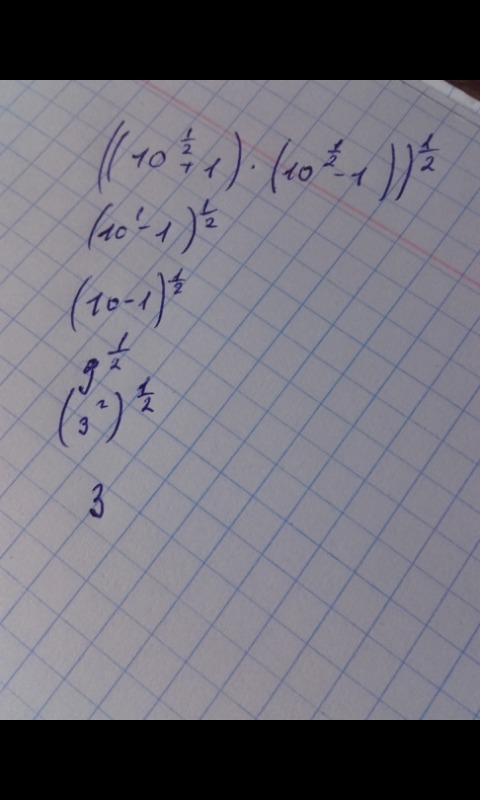 ((10^{1/2} + 1) · (10^{1/2} - 1))^{1/2}
(10^1 - 1)^{1/2}
(10 - 1)^{1/2}
9^{1/2}
(3^2)^{1/2}
3